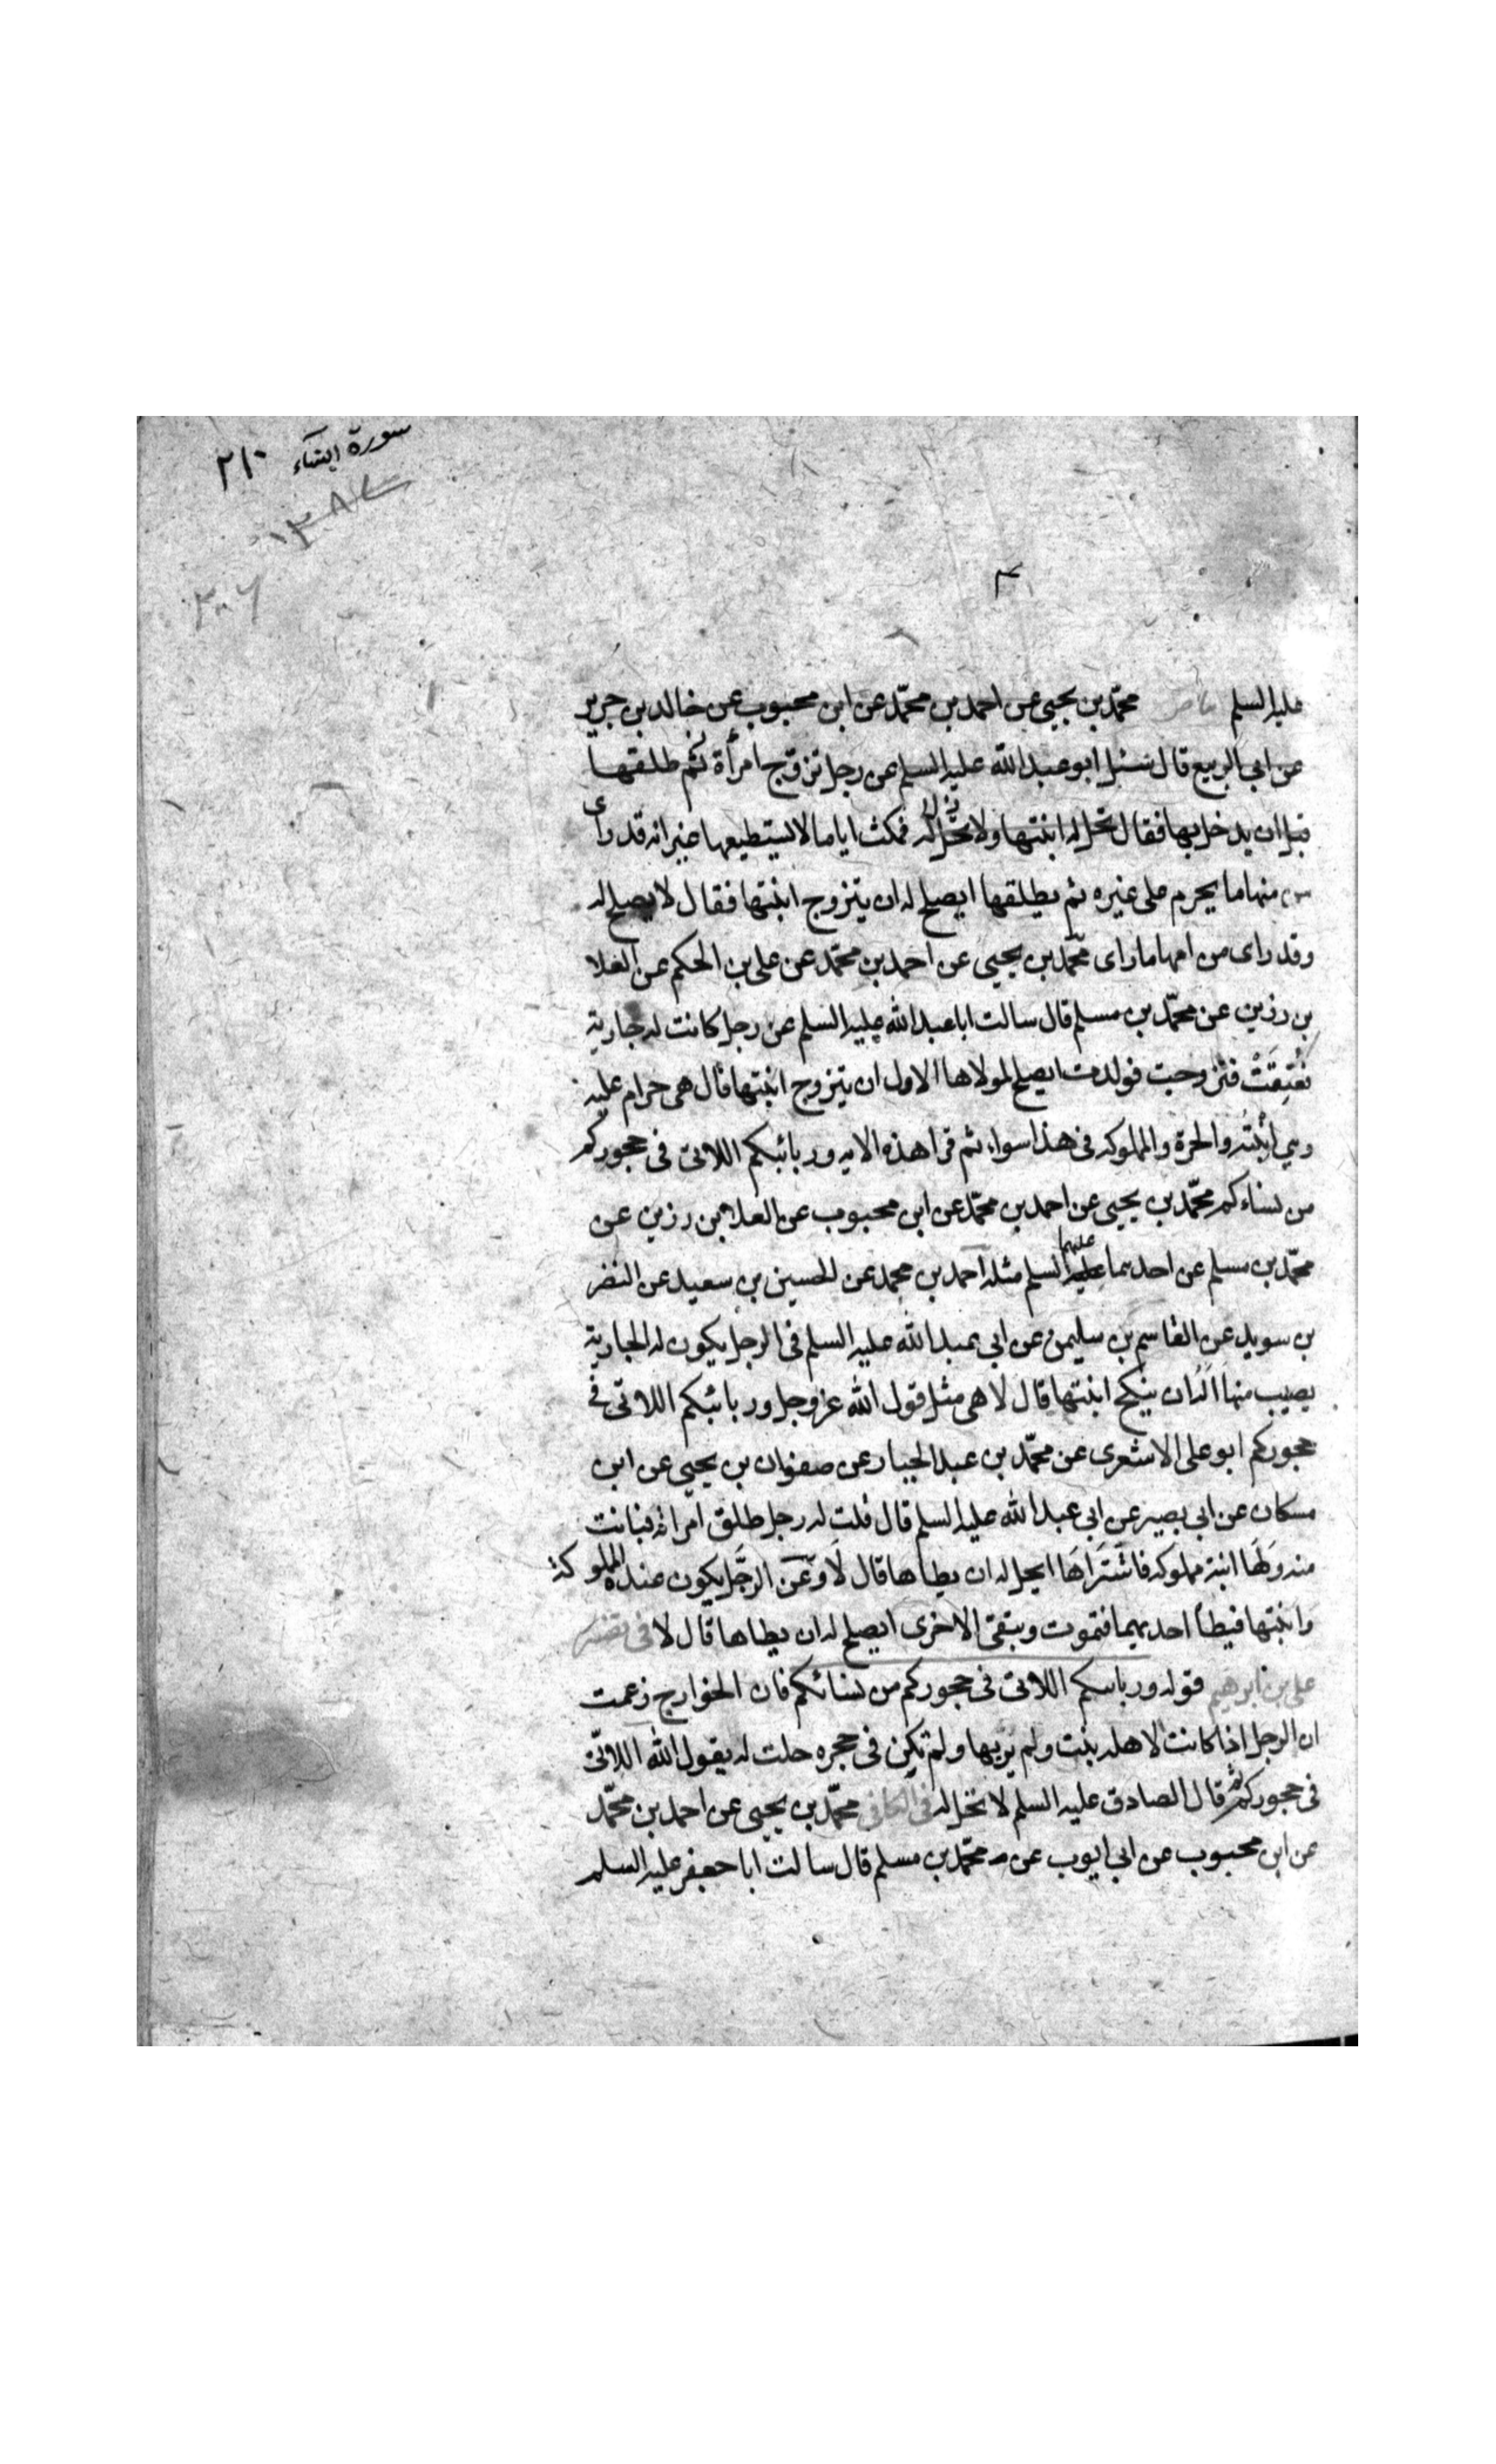 سورة النساء ٢١٠
١٣٨٧
٢٠٦
عليه السلم محمّد بن يحيى عن احمد بن محمّد عن ابن محبوب عن خالد بن جرير
عن ابي الربيع قال سئل ابو عبد الله عليه السلم عن رجل تزوّج امرأة ثم طلقها
قبل ان يدخل بها فقال تحل له ابنتها ولا تحل له فمكث اياما لا يستطيعها غير انه قد راى
منها ما يحرم على غيره ثم يطلقها ايصلح له ان يتزوج ابنتها فقال لا يصلح له
وقد راى من امها ما راى محمّد بن يحيى عن احمد بن محمّد عن على بن الحكم عن العلا
بن رزين عن محمّد بن مسلم قال سالت ابا عبد الله عليه السلم عن رجل كانت له جارية
فعُتِقَتْ فتزوجت فولدت ايصلح لمولاها الاول ان يتزوج ابنتها قال هى حرام عليه
وهي ابْنَتُه والحرة والمملوكه فى هذا سواء ثم قرا هذه الايه وربائبكم اللاتى فى حجوركم
من نساءكم محمّد بن يحيى عن احمد بن محمّد عن ابن محبوب عن العلا بن رزين عن
محمّد بن مسلم عن احدهما عليهما السلم مثله احمد بن محمد عن الحسين بن سعيد عن النضر
بن سويد عن القاسم بن سليمن عن ابي عبد الله عليه السلم فى الرجل يكون له الجارية
يصيب منها اَلَهُ ان ينكح ابنتها قال لا هى مثل قول الله عز وجل وربائبكم اللاتى فى
حجوركم ابو على الاشعرى عن محمّد بن عبد الجبار عن صفوان بن يحيى عن ابن
مسكان عن ابي بصير عن ابي عبد الله عليه السلم قال قلت له رجل طلق امراته فبانت
منه وَلَهَا ابنة مملوكه فاشْتَرَاهَا ايحل له ان يطاها قال لَا وعَنِ الرَّجل يكون عنده المملوكة
وَابنتها فيطأ احديهما فتموت وتبقى الاخرى ايصلح له ان يطاها قال لا فى تفسير
على بن ابرهيم قوله وربائبكم اللاتى فى حجوركم من نسائكم فان الخوارج زعمت
ان الرجل اذا كانت لاهله بنت ولم يُرَبِّها ولم تكن فى حجره حلت له يقول الله اللاتى
فى حجوركم ثم قال الصادق عليه السلم لا تحل له فى الكافى محمّد بن يحيى عن احمد بن محمّد
عن ابن محبوب عن ابي ايوب عن محمّد بن مسلم قال سالت ابا جعفر عليه السلم